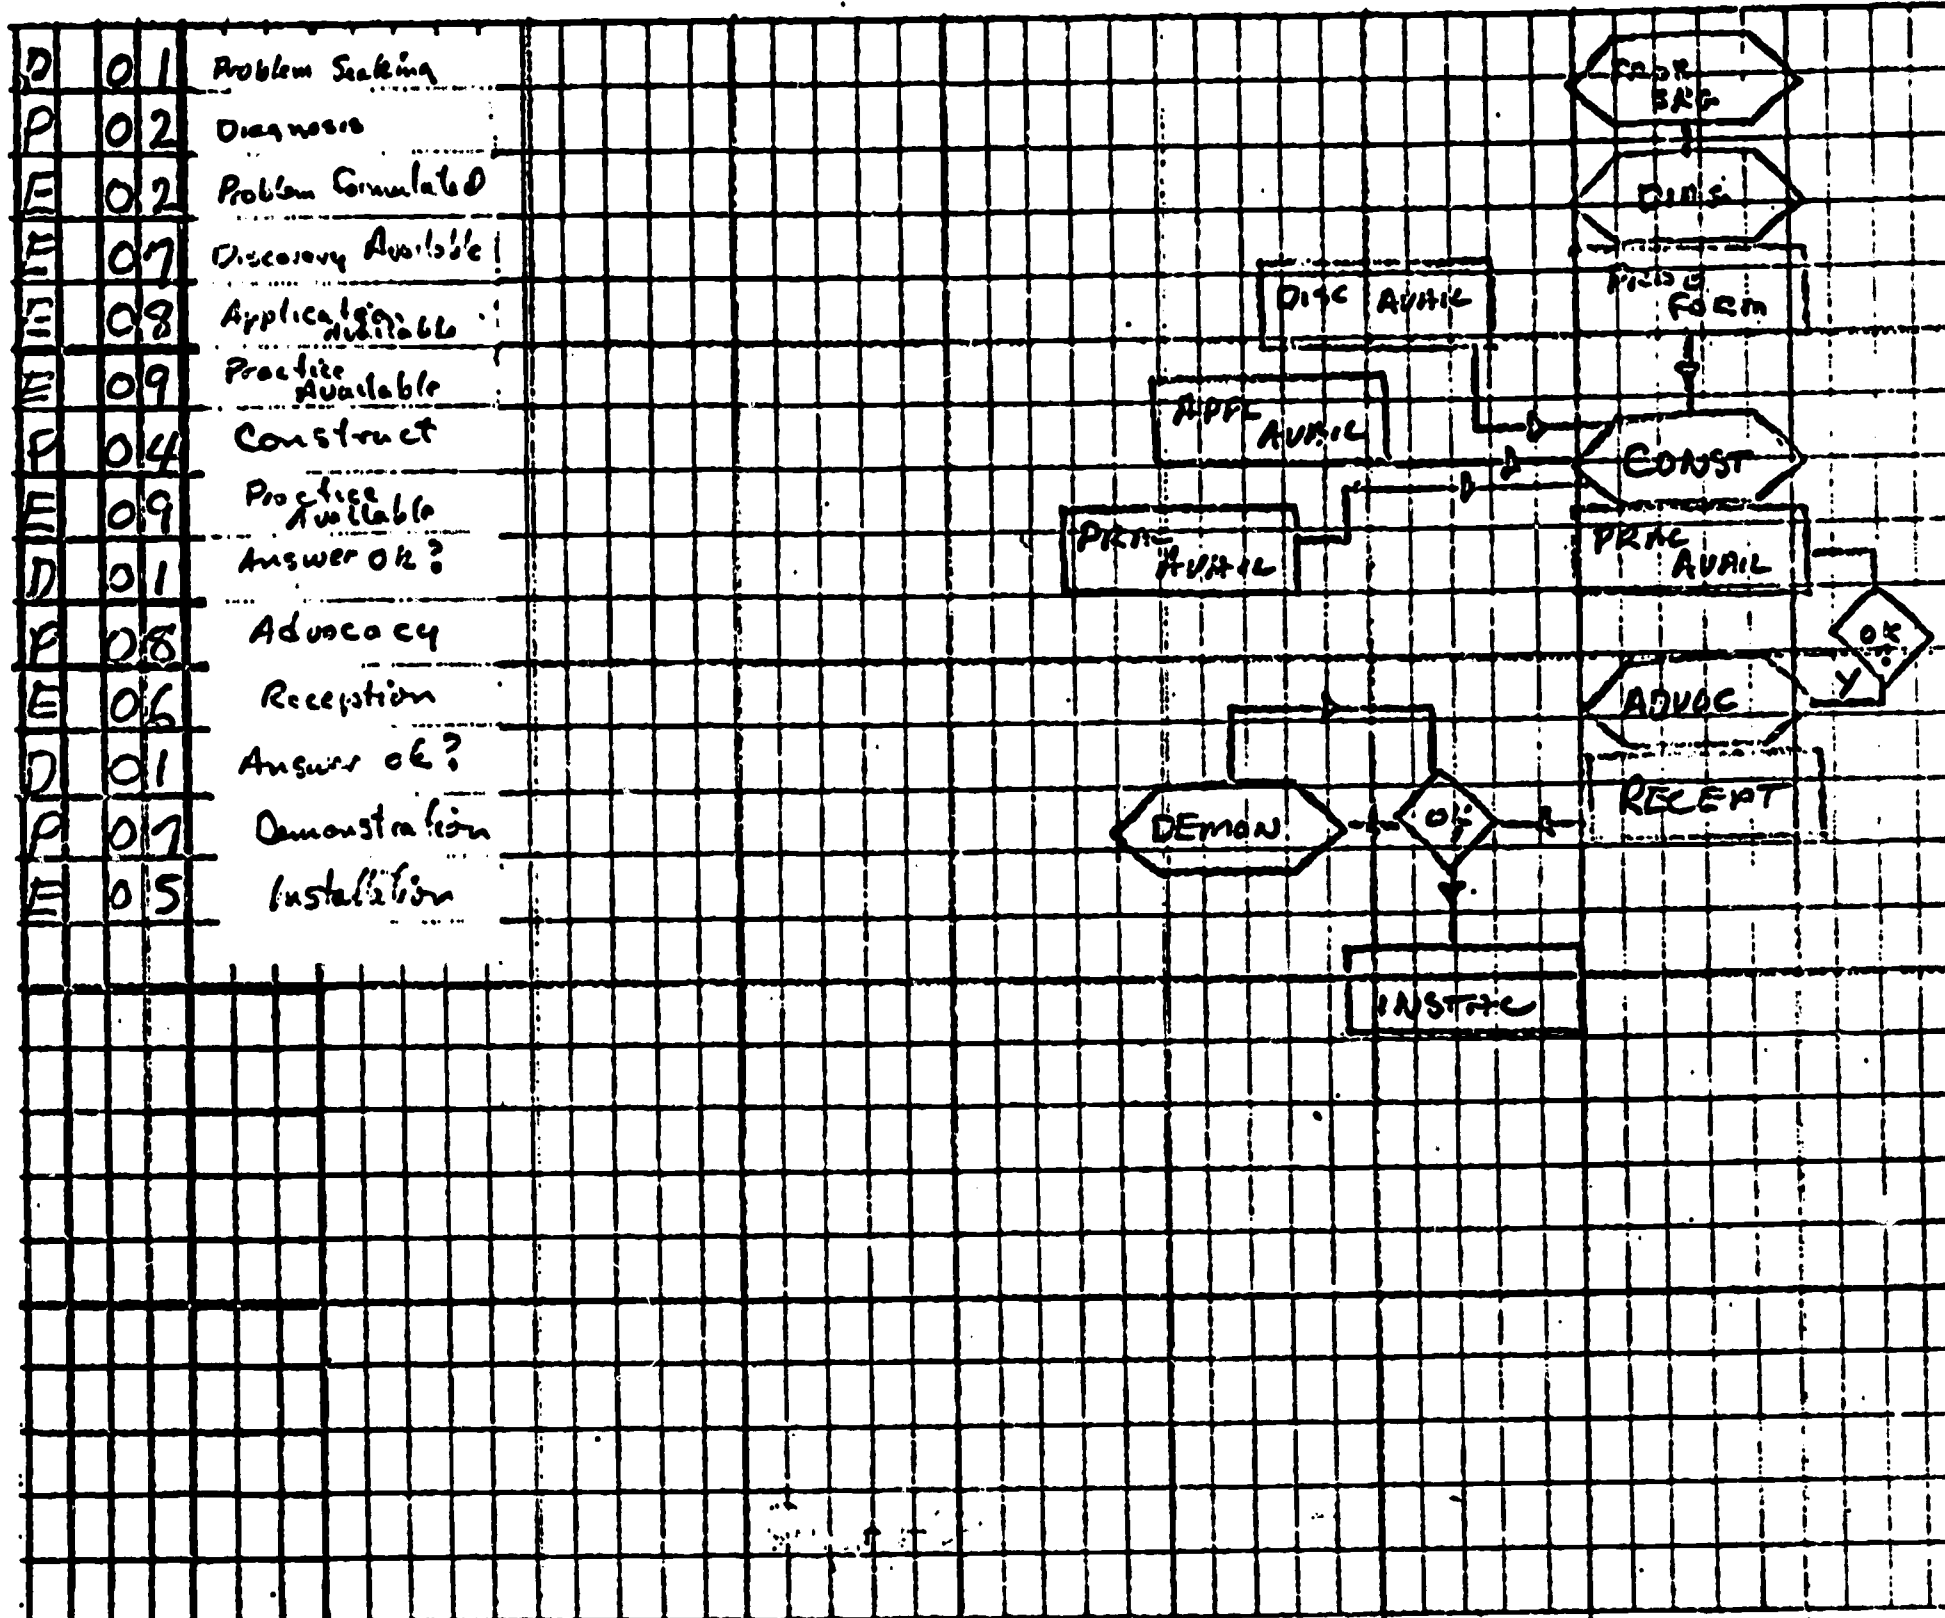 P 01 Problem Seeking
P 02 Diagnosis
E 02 Problem Formulated
E 07 Discovery Available
E 08 Application
Available
E 09 Practice
Available
P 04 Construct
E 09 Practice
Available
D 01 Answer ok?
P 08 Advocacy
E 06 Reception
D 01 Answer ok?
P 07 Demonstration
E 05 Installation
DIAG
DISC AVAIL
FORM
APPL
AVAIL
CONST
PRAC
AVAIL
PRAC
AVAIL
OK
?
Y
ADVOC
RECEPT
DEMON
OK
?
INSTAL